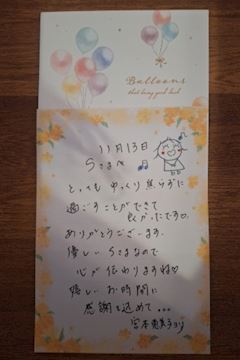 Balloons
that bring good luck
11月13日
Sさまへ
とってもゆっくり焦らずに
過ごすことができて
良かったです♡
ありがとうございます.
優しいSさまなので
心が伝わりますね♡
嬉しいお時間に
感謝を込めて...
宮本
より